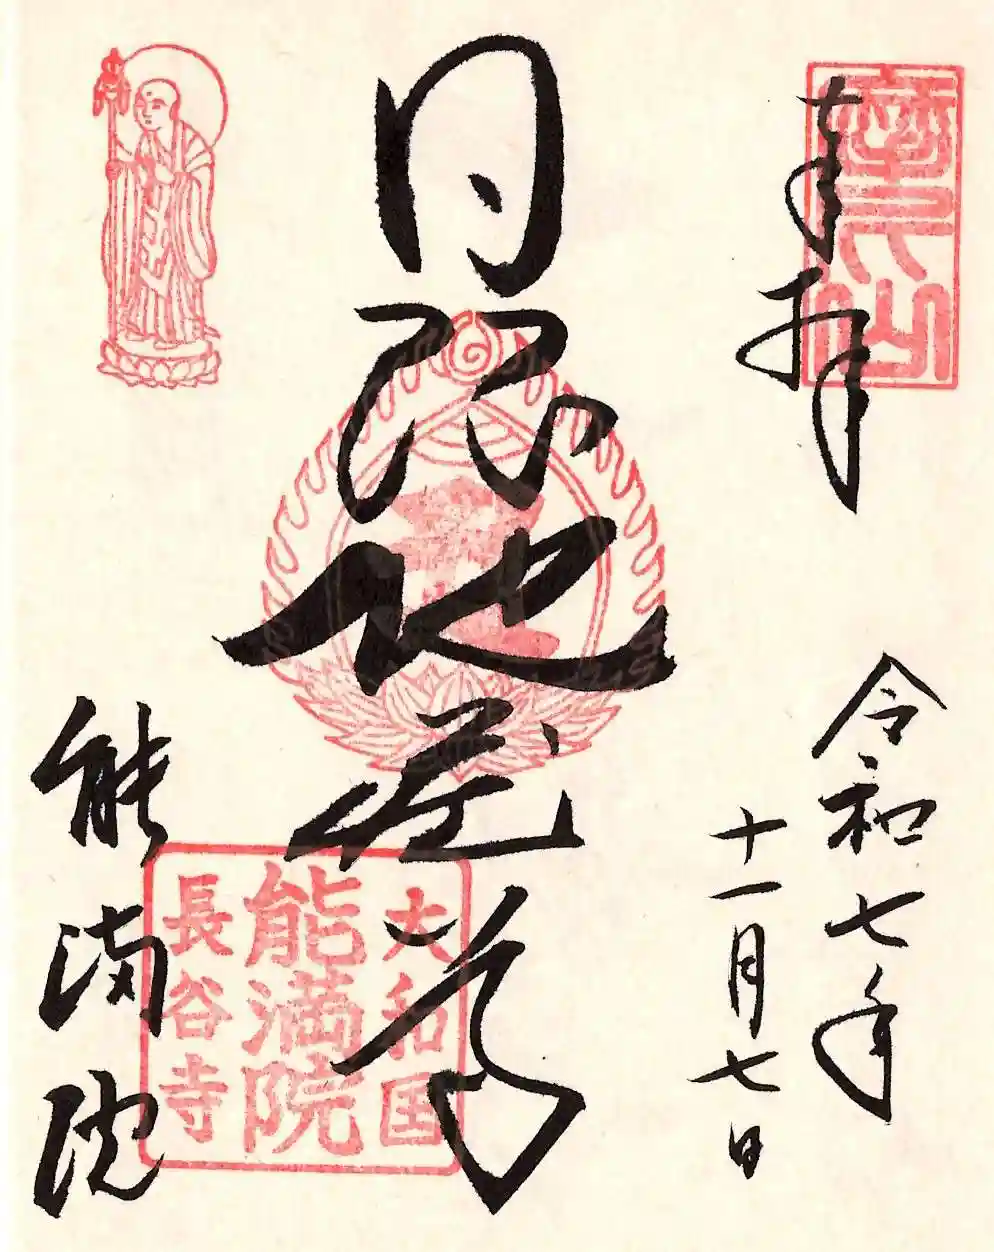 奉拝
令和七年
十一月七日
日限地蔵尊
大和国
能満院
長谷寺
能満院